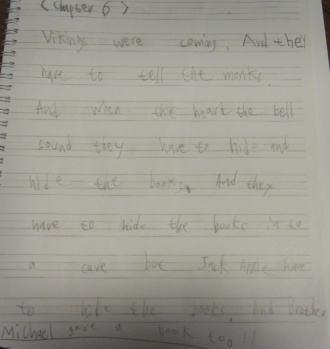 (Chapter 6)
Vikings were coming. And they
have to tell the monks.
And when the heart the bell
sound they have to hide and
hide the books. And they
have to hide the books in to
a cave but Jack Annie have
to hide the books. And Brother
Michael gave a book too!!